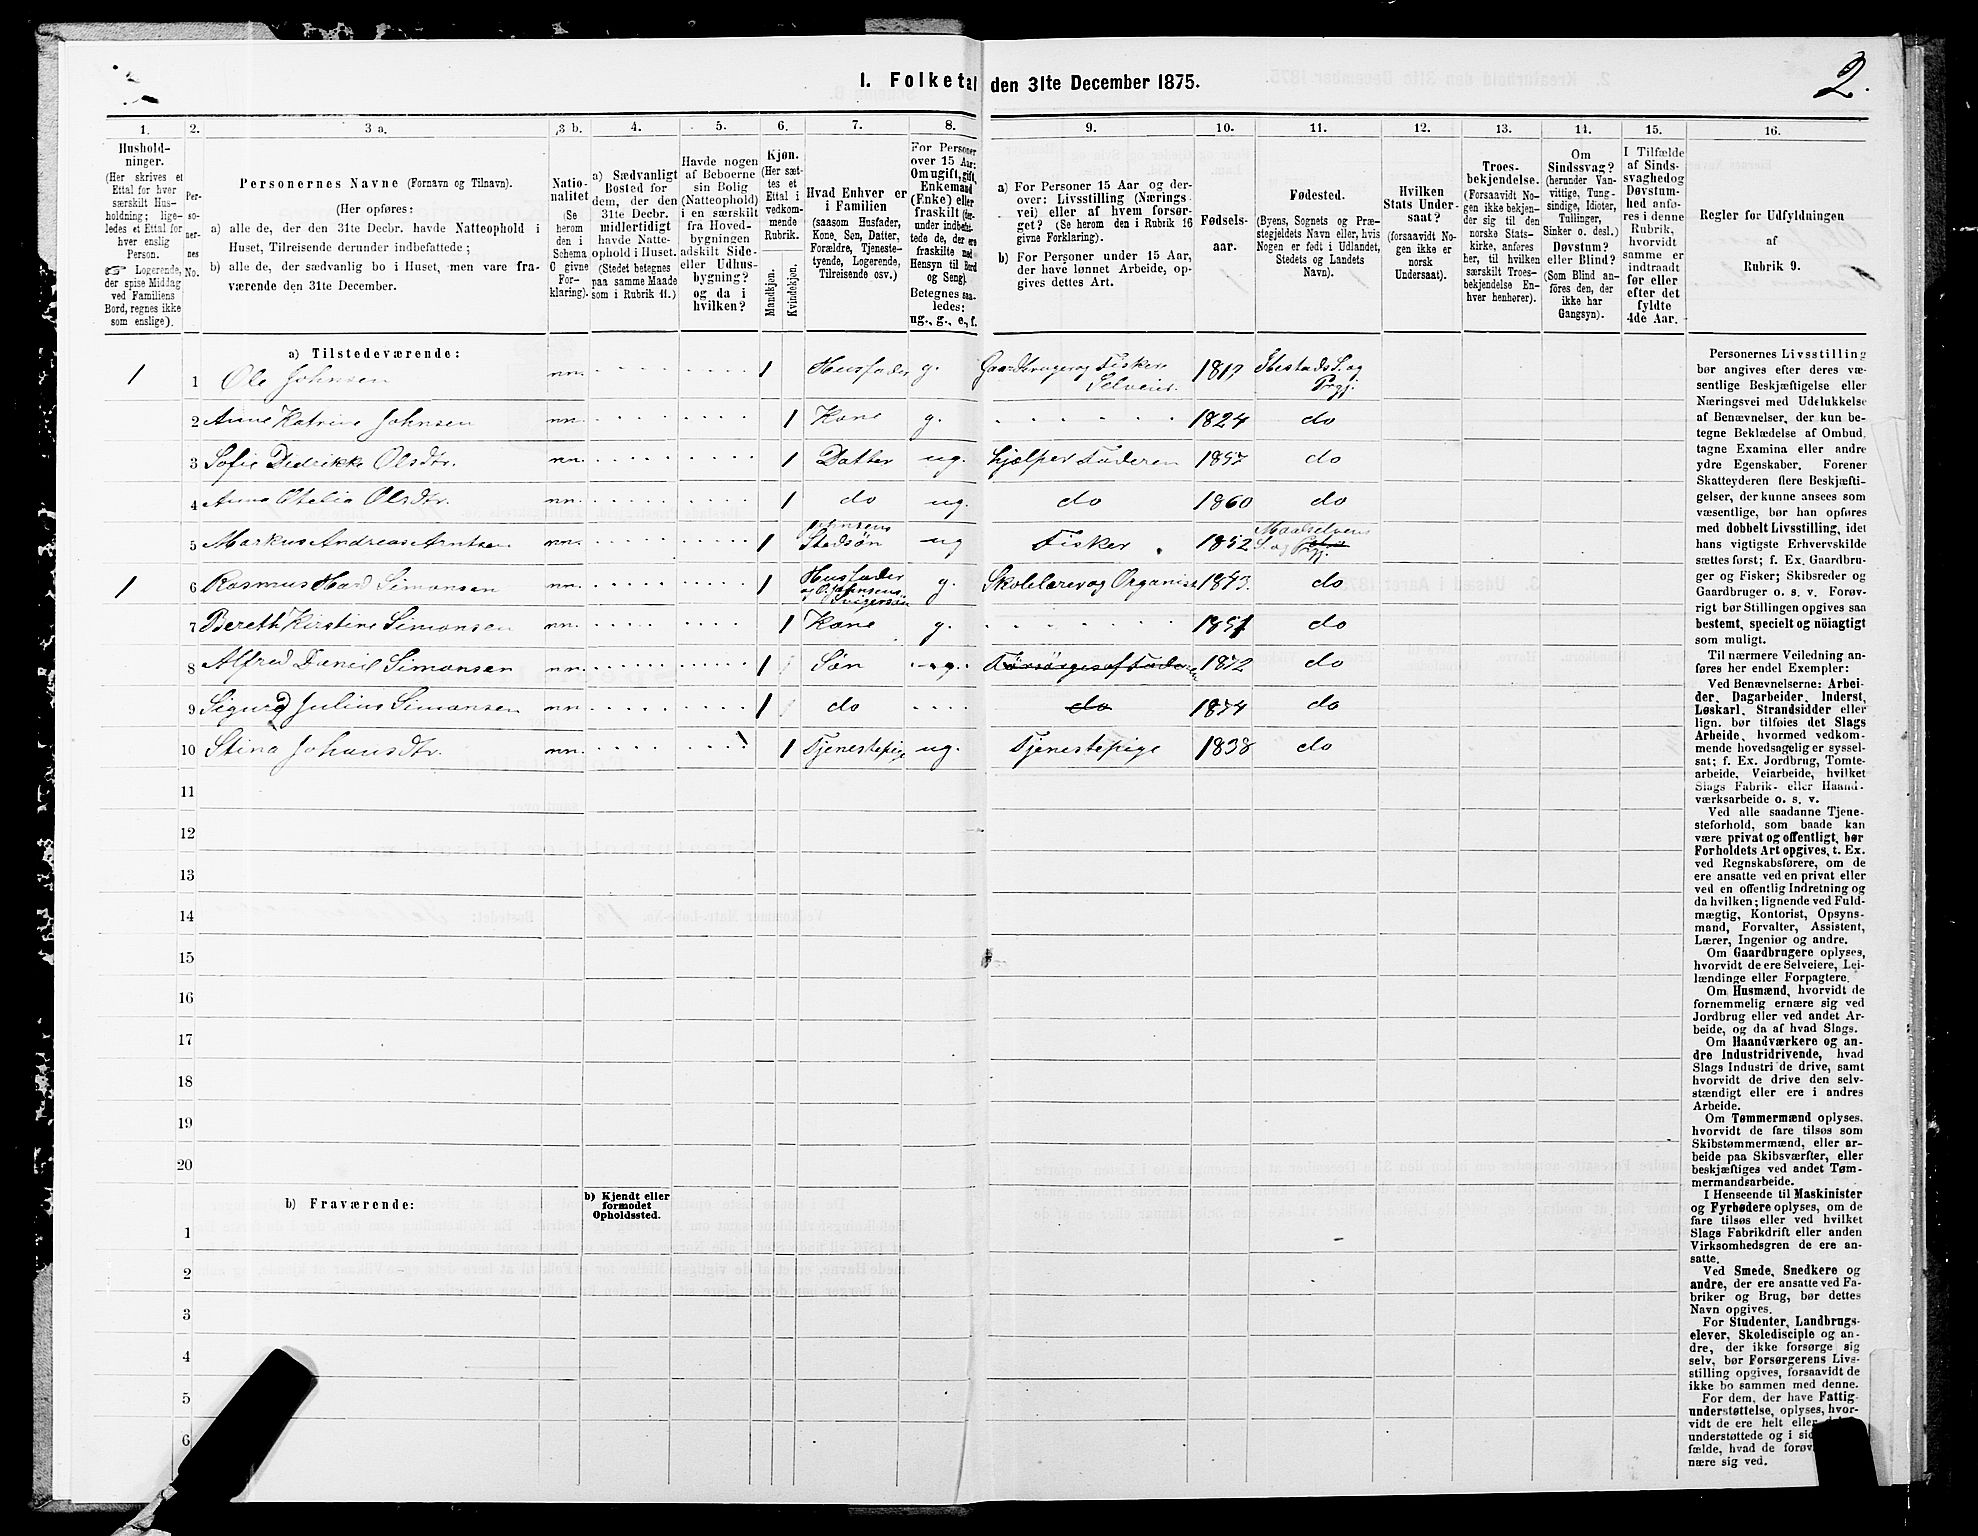 1. Folketal den 31te December 1875.
2.
1.
2.
3 a.
3 b.
4.
5.
6.
7.
8.
9.
10.
11.
12.
13.
14.
15.
16.
Hushold-
ninger.
(Her skrives et
Ettal for hver
særskilt Hus-
holdning; lige-
ledes et Ettal for
hver enslig
Person.
☞ Logerende,
der spise Middag
ved Familiens
Bord, regnes ikke
som enslige).
Per-
so-
ner-
nes
No.
Personernes Navne (Fornavn og Tilnavn).
(Her opføres:
a) alle de, der den 31te Decbr. havde Natteophold i
Huset, Tilreisende derunder indbefattede;
b) alle de, der sædvanlig bo i Huset, men vare fra-
værende den 31te December.
Natio-
nalitet
(Se
herom
den i
Schema
C givne
For-
klaring).
a) Sædvanligt
Bosted for
dem, der den
31te Decbr.
midlertidigt
havde Natte-
ophold i Huset.
(Stedet betegnes
paa samme Maade
som i Rubrik 11.)
Havde nogen
af Beboerne
sin Bolig
(Natteophold)
i en særskilt
fra Hoved-
bygningen
adskilt Side-
eller Udhus-
bygning?
og da i
hvilken?
Kjøn.
(Her sæt-
tes et
Ettal i
vedkom-
mende
Rubrik.
Mandkjøn.
Kvindekjøn.
Hvad Enhver er
i Familien
(saasom Husfader,
Kone, Søn, Datter,
Forældre, Tjeneste-
tyende, Logerende,
Tilreisende osv.)
For Personer
over 15 Aar:
Om ugift, gift,
Enkemand
(Enke) eller
fraskilt (der-
under indbefat-
tede de, der ere
fraskilte med
Hensyn til Bord
og Seng).
Betegnes saa-
ledes:
ug., g., e., f.
a) For Personer 15 Aar og der-
over: Livsstilling (Nærings-
vei) eller af hvem forsør-
get? (Se herom den i Rubrik 16
givne Forklaring).
b) For Personer under 15 Aar,
der have lønnet Arbeide, op-
gives dettes Art.
Fødsels-
aar.
Fødested.
(Byens, Sognets og Præ-
stegjeldets Navn eller, hvis
Nogen er født i Udlandet,
Stedets og Landets
Navn).
Hvilken
Stats Under-
saat?
(forsaavidt No-
gen ikke er
norsk
Undersaat).
Troes-
bekjendelse.
(Forsaavidt No-
gen ikke bekjen-
der sig til den
norske Stats-
kirke, anføres
her, til hvilken
særskilt Troes-
bekjendelse En-
hver henhører).
Om
Sindssvag?
(herunder Van-
vittige, Tung-
sindige, Idioter,
Tullinger,
Sinker o. desl.)
Døvstum?
eller Blind?
(Som Blind an-
føres den, der
ikke har
Gangsyn).
I Tilfælde
af Sinds-
svaghed og
Døvstum-
hed anfø-
res i denne
Rubrik,
hvorvidt
samme er
indtraadt
før eller
efter det
fyldte
4de Aar.
Regler for Udfyldningen
af
Rubrik 9.
a) Tilstedeværende:
1 1 Ole Johnsen nn. 1 Husfader g. Gaardbruger og Fisker Selveier. 1817 Ibestads S. og Prgj.
2 Anne Katrine Johnsen nn. 1 Kone g. 1824 do
3 Sofie Didrikke Olsdtr. nn. 1 Datter ug. hjælper Faderen 1857 do
4 Anna Otelia Olsdtr. nn. 1 do ug. do 1860 do
5 Markus Andreas Arntsen nn. 1 Johnsens Stedsøn ug Fisker 1852 Maalselvens S. og Prgj.
1 6 Rasmus Hard Simonsen nn. 1 Husfader og O. Johnsens Svigersøn g. Skolelærer og Organist 1843. do
7 Bereth Kirstine Simonsen nn. 1 Kone g. 1851 do
8 Alfred Daniel Simonsen nn. 1 Søn ug. Forsørges af Faderen 1872 do
9 Sigurd Julius Simonsen nn. 1 do do 1874 do
10 Stina Johansdtr. nn. 1 Tjenestepige ug. Tjenestepige 1838 do
11
12
13
14
15
16
17
18
19
20
b) Fraværende:
b) Kjendt eller
formodet
Opholdssted.
1
2
3
4
5
6
Personernes Livsstilling
bør angives efter deres væ-
sentlige Beskjæftigelse eller
Næringsvei med Udelukkelse
af Benævnelser, der kun be-
tegne Beklædelse af Ombud,
tagne Examina eller andre
ydre Egenskaber. Forener
Skatteyderen flere Beskjæfti-
gelser, der kunne ansees som
væsentlige, bør han opføres
med dobbelt Livsstilling, idet
hans vigtigste Erhvervskilde
sættes først; f. Ex. Gaardbru-
ger og Fisker; Skibsreder og
Gaardbruger o. s. v. Forøv-
rigt bør Stillingen opgives saa
bestemt, specielt og nøiagtigt
som muligt.
Til nærmere Veiledning an-
føres her endel Exempler:
Ved Benævnelserne: Arbei-
der, Dagarbeider, Inderst,
Løskarl, Strandsidder eller
lign. bør tilføies det Slags
Arbeide, hvormed vedkom-
mende hovedsagelig er syssel-
sat; f. Ex. Jordbrug, Tomte-
arbeide, Veiarbeide, hvilket
Slags Fabrik- eller Haand-
værksarbeide o. s. v.
Ved alle saadanne Tjene-
steforhold, som baade kan
være privat og offentligt, bør
Forholdets Art opgives, t. Ex.
ved Regnskabsførere, om de
ere ansatte ved en privat eller
ved en offentlig Indretning og
da hvilken; lignende ved Fuld-
mægtig, Kontorist, Opsyns-
mand, Forvalter, Assistent,
Lærer, Ingeniør og andre.
Om Gaardbrugere oplyses,
hvorvidt de ere Selveiere, Lei-
lændinge eller Forpagtere.
Om Husmænd, hvorvidt de
fornemmelig ernære sig ved
Jordbrug eller ved andet Ar-
beide, og da af hvad Slags.
Om Haandværkere og an-
dre Industridrivende, hvad
Slags Industri de drive, samt
hvorvidt de drive den selv-
stændigt eller ere i andres
Arbeide.
Om Tømmermænd oplyses,
hvorvidt de fare tilsøs som
Skibstømmermænd, eller ar-
beide paa Skibsværfter, eller
beskjæftiges ved andet Tøm-
mermandsarbeide.
I Henseende til Maskinister
og Fyrbødere oplyses, om de
fare tilsøs eller ved hvilket
Slags Fabrikdrift eller anden
Virksomhedsgren de ere an-
satte.
Ved Smede, Snedkere og
andre, der ere ansatte ved Fa-
briker og Brug, bør dettes
Navn opgives.
For Studenter, Landbrugs-
elever, Skoledisciple og an-
dre, der ikke forsørge sig
selv, bør Forsørgerens Livs-
stilling opgives, forsaavidt de
ikke bo sammen med denne.
For dem, der have Fattig-
understøttelse, oplyses, hvor-
vidt de ere helt eller
understøttede og i
fælde, hvad de
nære sig ved.